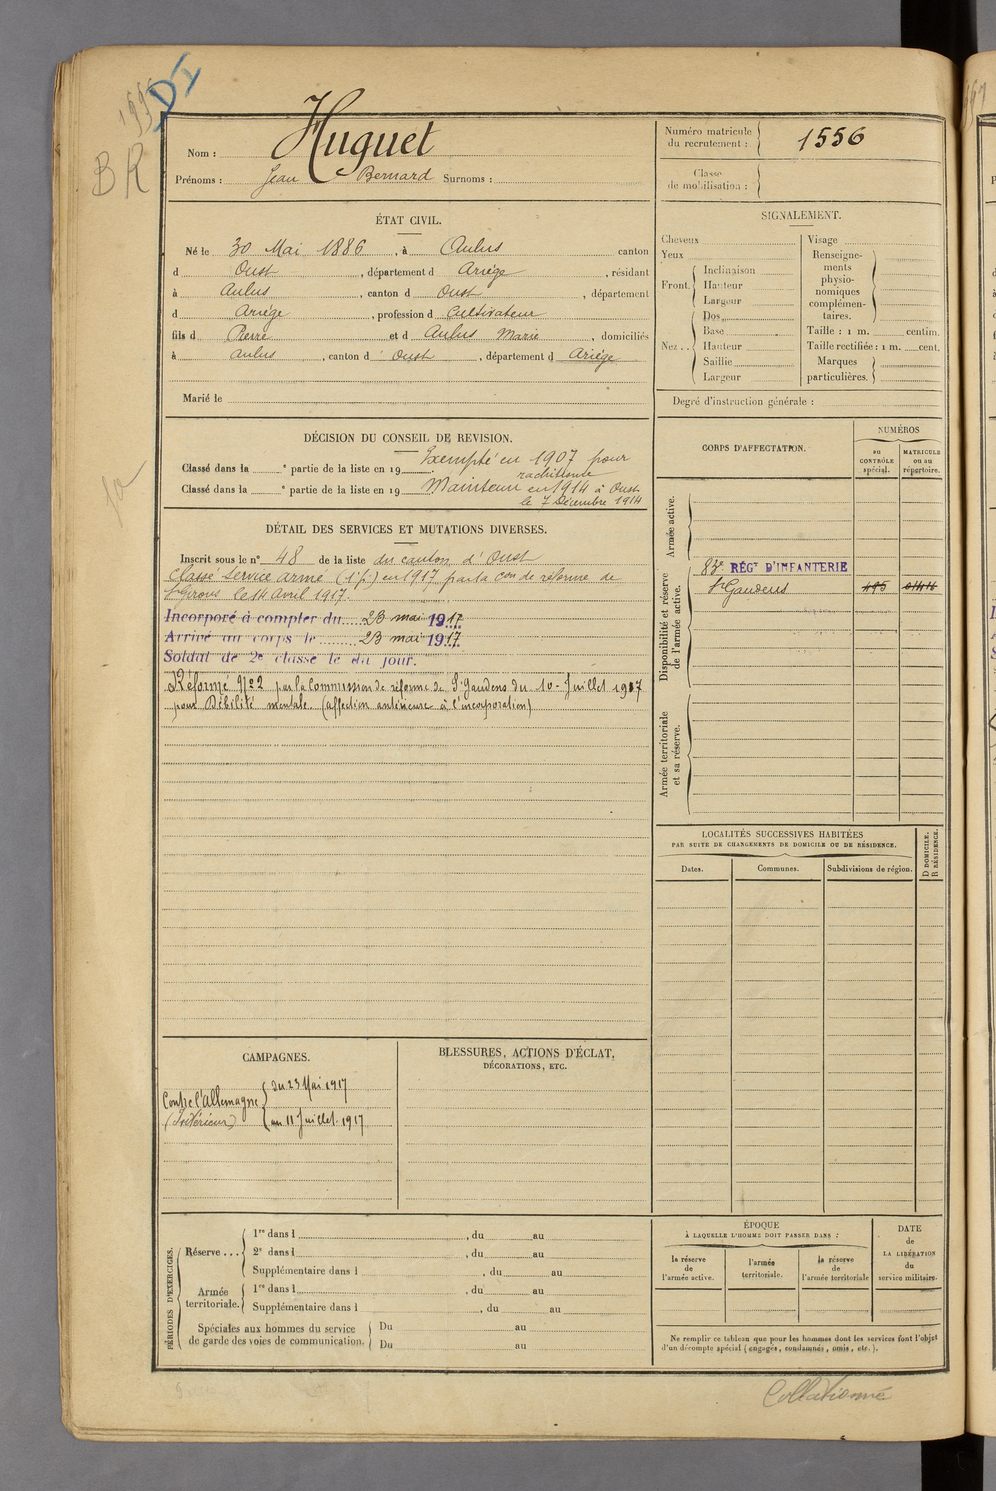 1556
DI
BR
Nom : Huguet
Prénoms : Jean Bernard Surnoms :
Numéro matricule
du recrutement : 1556
Classe
de mobilisation :
ÉTAT CIVIL.
Né le 30 Mai 1886, à Aulus canton
d Oust, département d Ariège, résidant
à Aulus, canton d Oust, département
d Ariège, profession d Cultivateur
fils d Pierre et d Aulus Marie, domiciliés
à Aulus, canton d Oust, département d Ariège
Marié le
SIGNALEMENT.
Cheveux
Yeux
Front.
Inclinaison
Hauteur
Largeur
Nez..
Dos
Base
Hauteur
Saillie
Largeur
Visage
Renseigne-
ments
physio-
nomiques
complémen-
taires.
Taille : 1 m. centim.
Taille rectifiée : 1 m. cent.
Marques
particulières.
Degré d'instruction générale :
DÉCISION DU CONSEIL DE REVISION.
Exempté en 1907 pour
rachitisme
Classé dans la e partie de la liste en 19
Classé dans la e partie de la liste en 19 Maintenu en 1914 à Oust
le 7 Décembre 1914
DÉTAIL DES SERVICES ET MUTATIONS DIVERSES.
Inscrit sous le n° 48 de la liste du canton d'Oust
Classé service armé (1 p.) en 1917 par la con de réforme de
St Girons le 14 Avril 1917.
Incorporé à compter du 23 mai 1917
Arrivé au corps le 23 mai 1917
Soldat de 2e classe le du jour.
Réformé N°2 par la Commission de réforme de St Gaudens du 10 Juillet 1917
pour Débilité mentale. (affection antérieure à l'incorporation)
CORPS D'AFFECTATION.
NUMÉROS
au
CONTRÔLE
spécial.
MATRICULE
ou au
répertoire.
Armée active.
Disponibilité et réserve
de l'armée active.
83e RÉGT D'INFANTERIE
St Gaudens
Armée territoriale
et sa réserve.
LOCALITÉS SUCCESSIVES HABITÉES
PAR SUITE DE CHANGEMENTS DE DOMICILE OU DE RÉSIDENCE.
D DOMICILE.
R RÉSIDENCE.
Dates.
Communes.
Subdivisions de région.
CAMPAGNES.
Contre l'Allemagne
(Intérieur)
du 23 Mai 1917
au 11 Juillet 1917
BLESSURES, ACTIONS D'ÉCLAT,
DÉCORATIONS, ETC.
PÉRIODES D'EXERCICES.
Réserve ...
1re dans l, du au
2e dans l, du au
Supplémentaire dans l, du au
Armée
territoriale.
1re dans l, du au
Supplémentaire dans l, du au
Spéciales aux hommes du service
de garde des voies de communication.
Du au
Du au
ÉPOQUE
À LAQUELLE L'HOMME DOIT PASSER DANS :
la réserve
de
l'armée active.
l'armée
territoriale.
la réserve
de
l'armée territoriale
DATE
de
LA LIBÉRATION
du
service militaire.
Ne remplir ce tableau que pour les hommes dont les services font l'objet
d'un décompte spécial (engagés, condamnés, omis, etc.).
Collationné